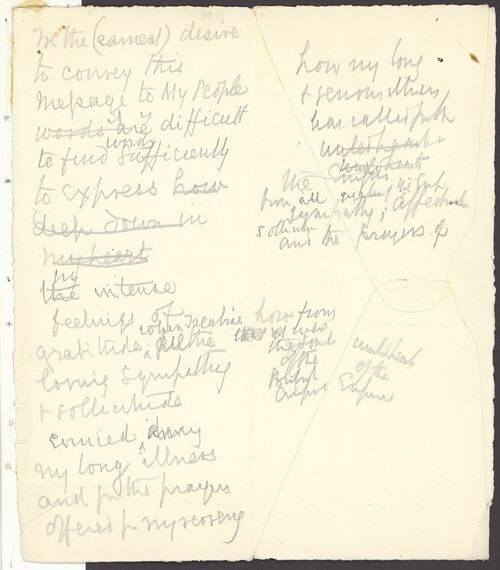 In the (earnest) desire
to convey this
Message to My People
words are difficult
to find sufficiently
to express how
deep down in
my heart
my
the intense
feelings of
when I realise
gratitude all the
loving sympathy
& sollicitude
evinced during
my long illness
and for the prayers
offered for my recovery
how my long
& serious illness
has called forth
the
from all
sympathy, affection
sollicitude
and the prayers of
how from
the soul
of the
British
Empire
of the
Empire